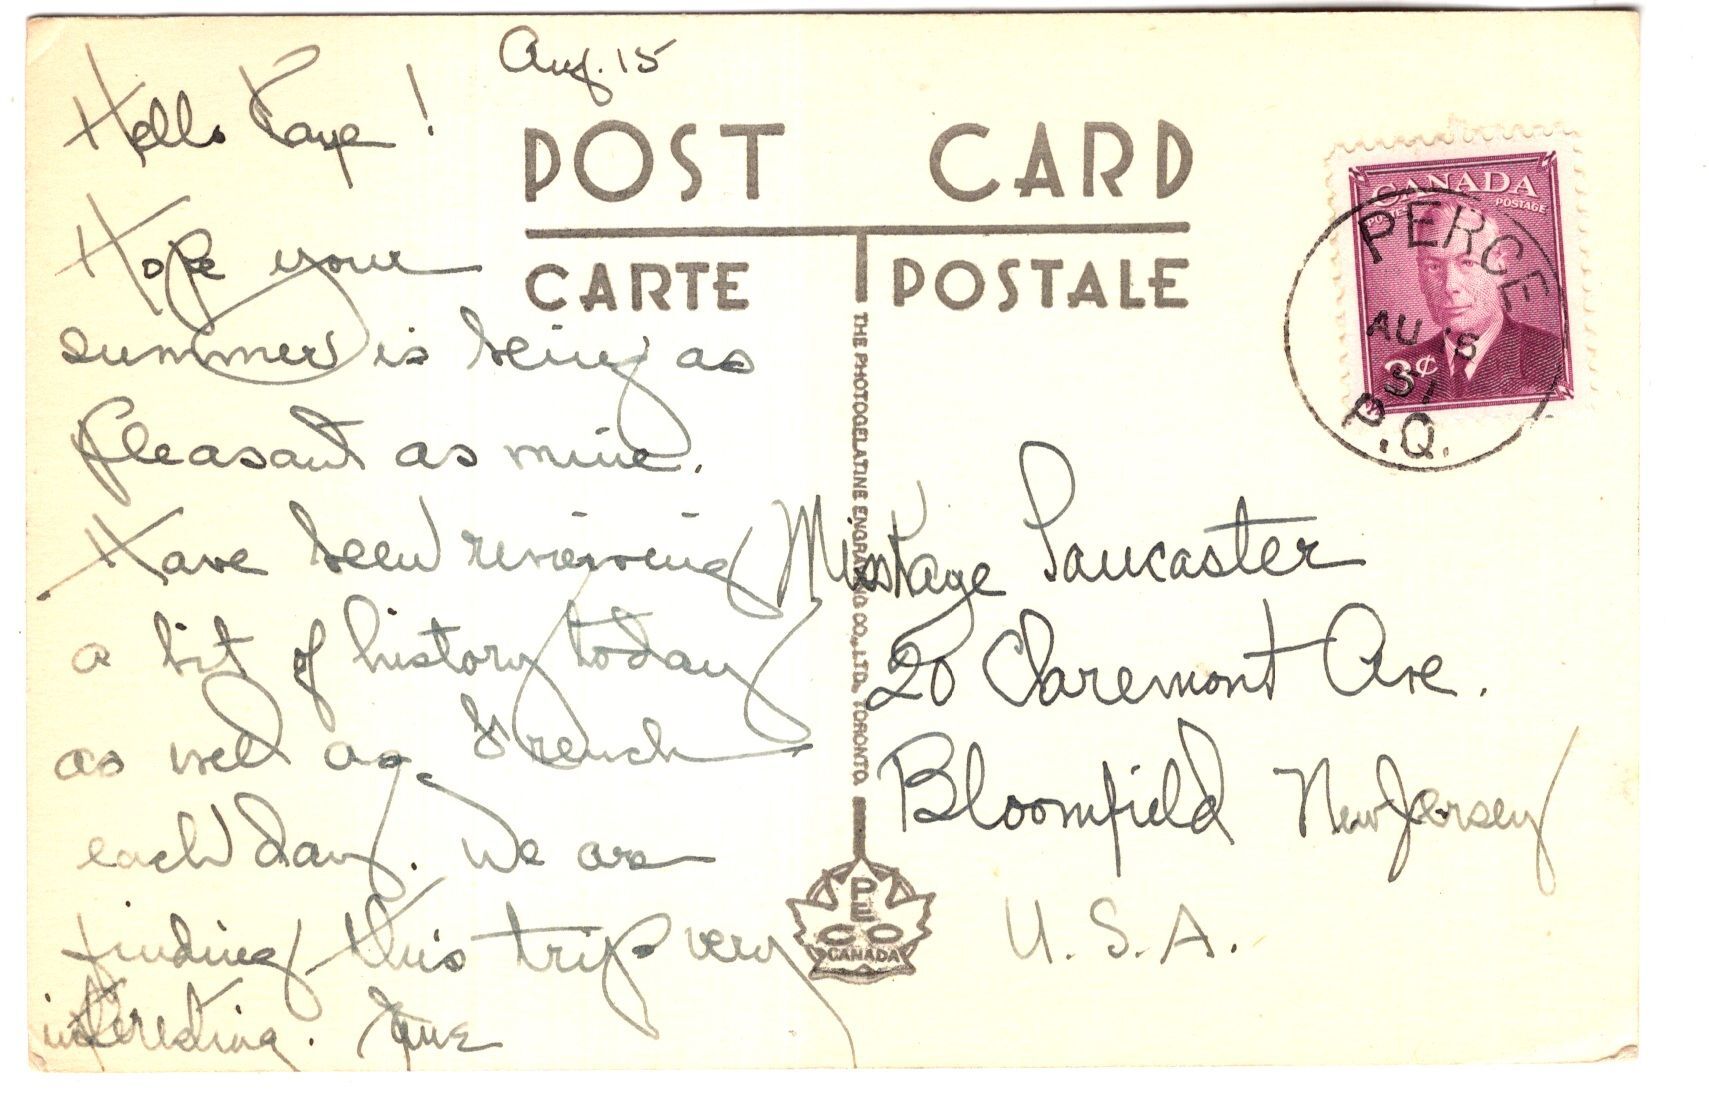 Aug. 15
Hello Kaye!
Hope your
summer is being as
pleasant as mine.
Have been reviewing
a bit of history today
as well as French
each day. We are
finding this trip very
interesting. June
POST CARD
CARTE POSTALE
THE PHOTOGELATINE ENGRAVING CO., LTD. TORONTO.
CANADA
POSTES POSTAGE
3¢
PERCE
AU
51
P.Q.
Miss Kaye Lancaster
20 Claremont Ave.
Bloomfield New Jersey
U.S.A.
PECO
CANADA